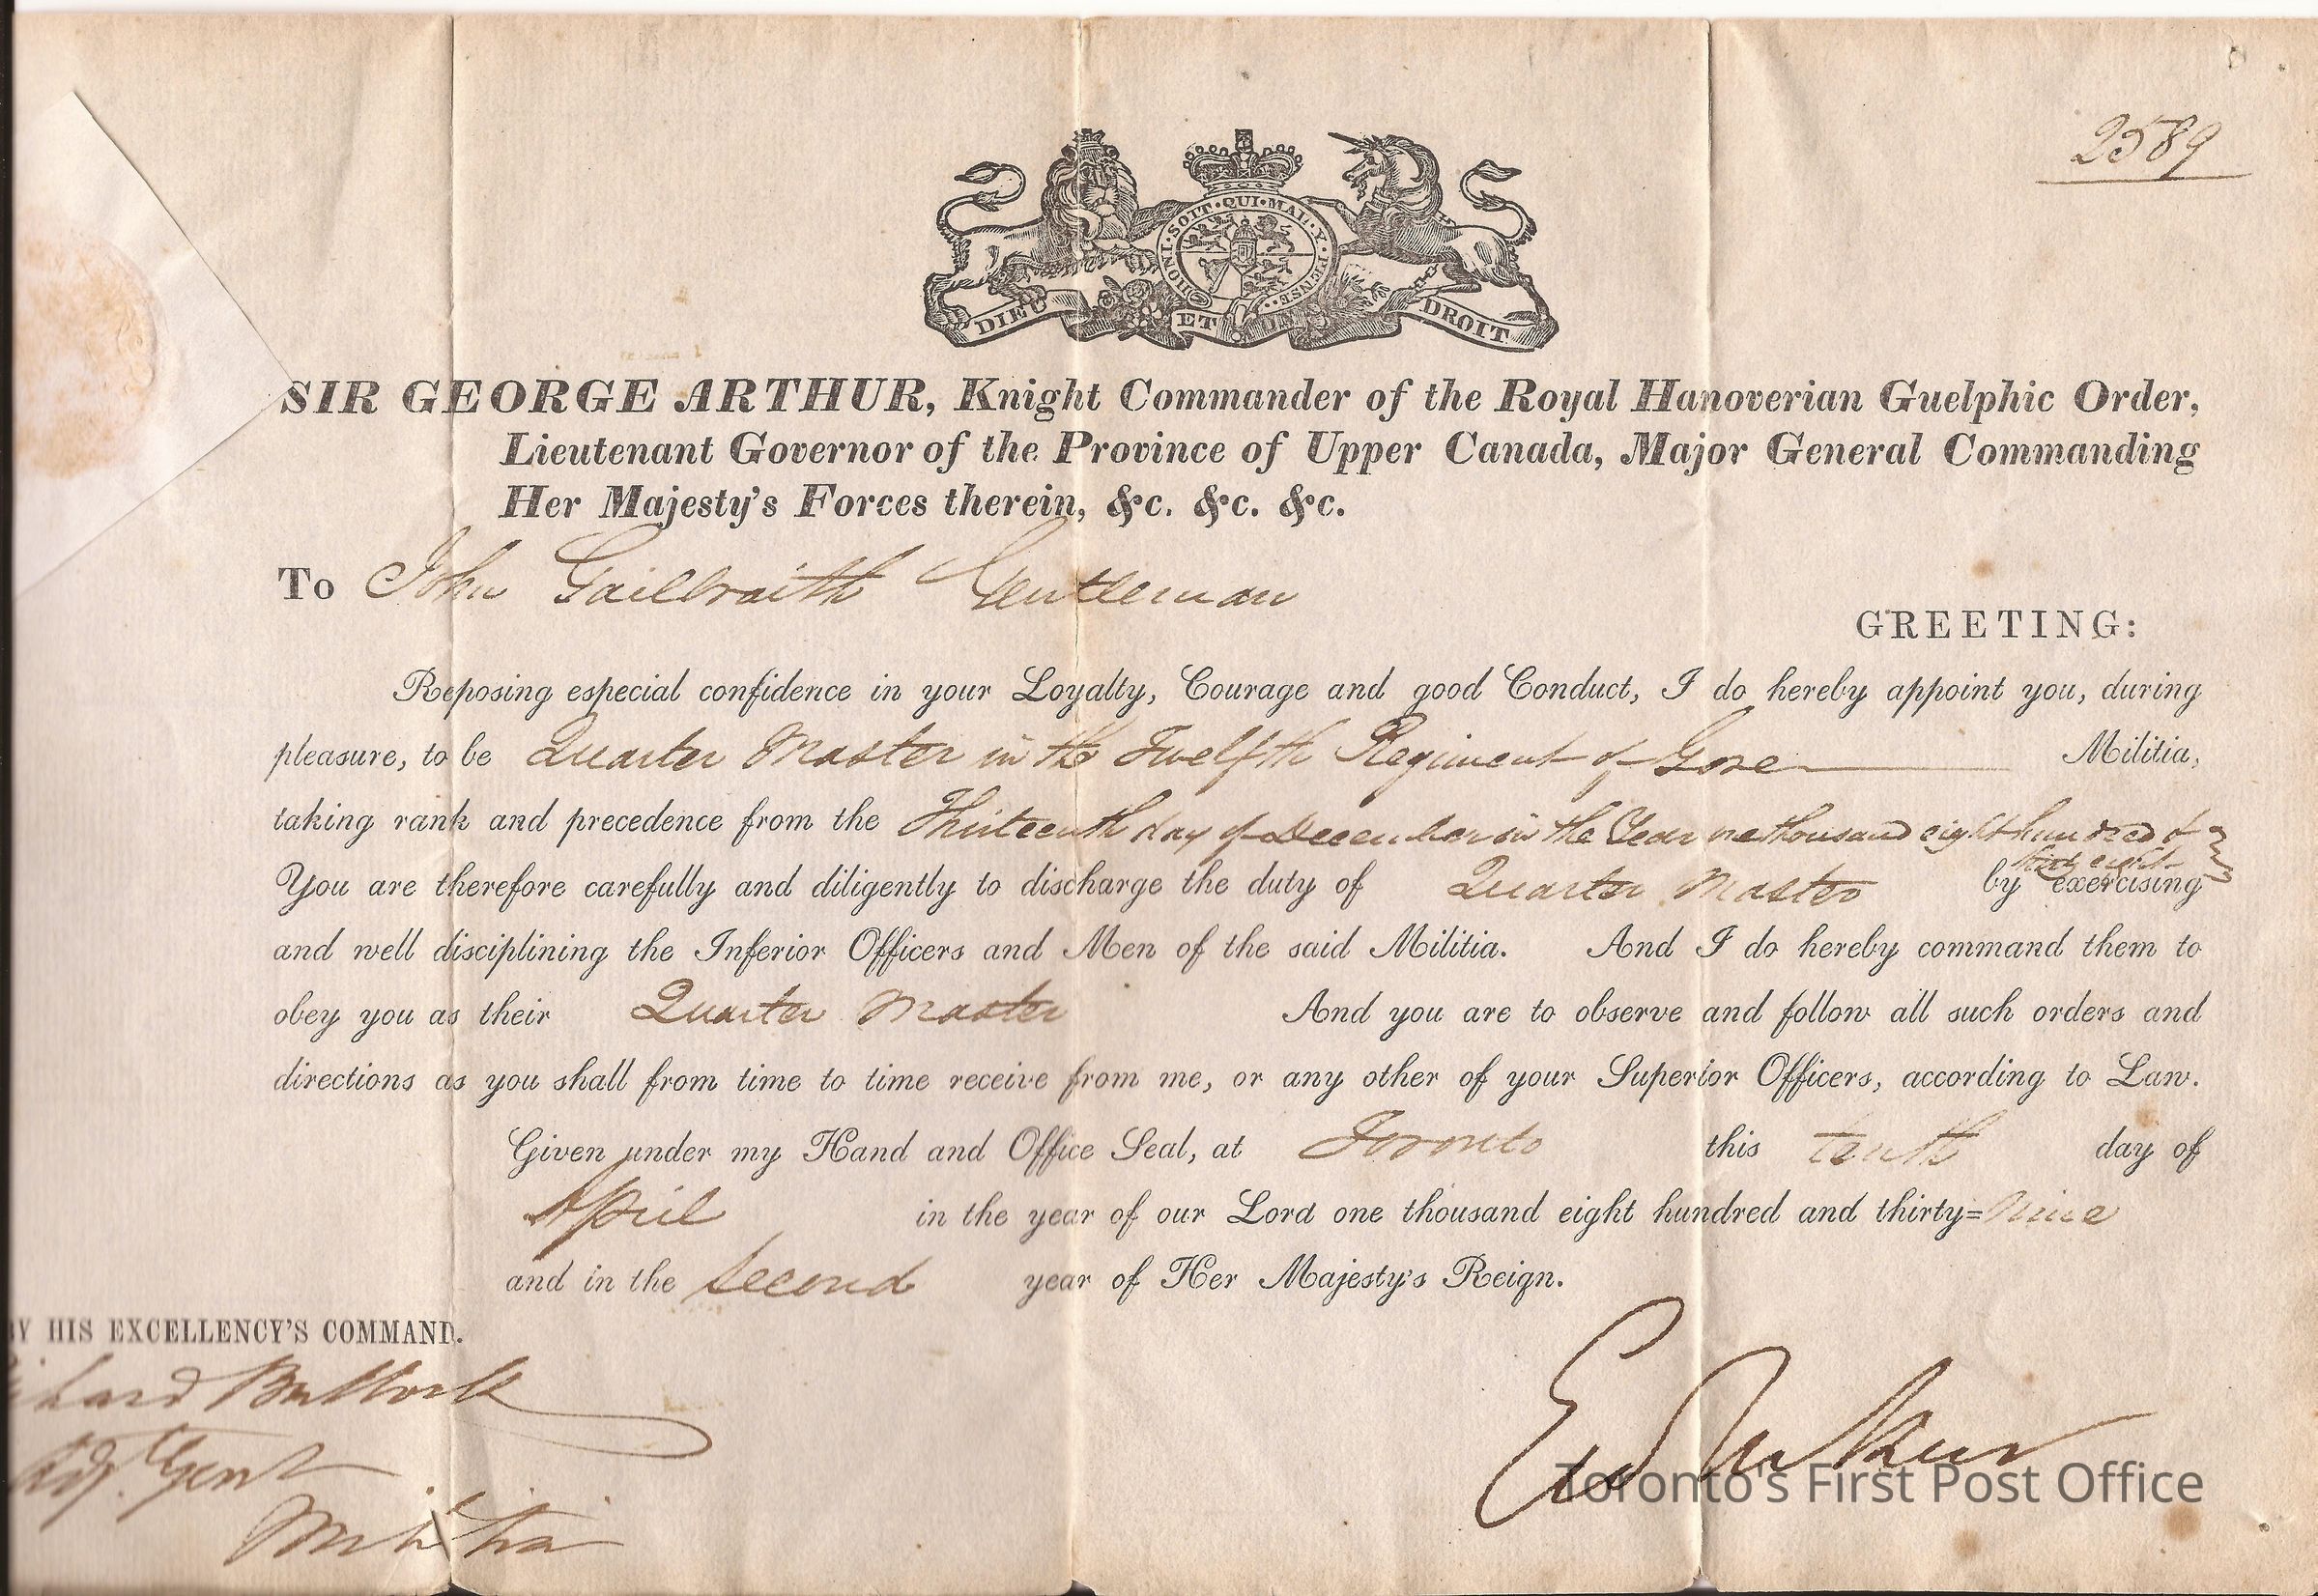 2589
HONI·SOIT·QUI·MAL·Y·PENSE
DIEU ET DROIT
SIR GEORGE ARTHUR, Knight Commander of the Royal Hanoverian Guelphic Order,
Lieutenant Governor of the Province of Upper Canada, Major General Commanding
Her Majesty's Forces therein, &c. &c. &c.
To John Gailbraith Gentleman
GREETING:
Reposing especial confidence in your Loyalty, Courage and good Conduct, I do hereby appoint you, during
pleasure, to be Quarter Master in the Twelfth Regiment of Gore Militia,
taking rank and precedence from the Thirteenth day of December in the Year one thousand eight hundred &
thirty eight
You are therefore carefully and diligently to discharge the duty of Quarter Master by exercising
and well disciplining the Inferior Officers and Men of the said Militia. And I do hereby command them to
obey you as their Quarter Master And you are to observe and follow all such orders and
directions as you shall from time to time receive from me, or any other of your Superior Officers, according to Law.
Given under my Hand and Office Seal, at Toronto this tenth day of
April in the year of our Lord one thousand eight hundred and thirty=nine
and in the second year of Her Majesty's Reign.
BY HIS EXCELLENCY'S COMMAND.
Richard Bullock
Adj. Genl
Militia
Toronto's First Post Office